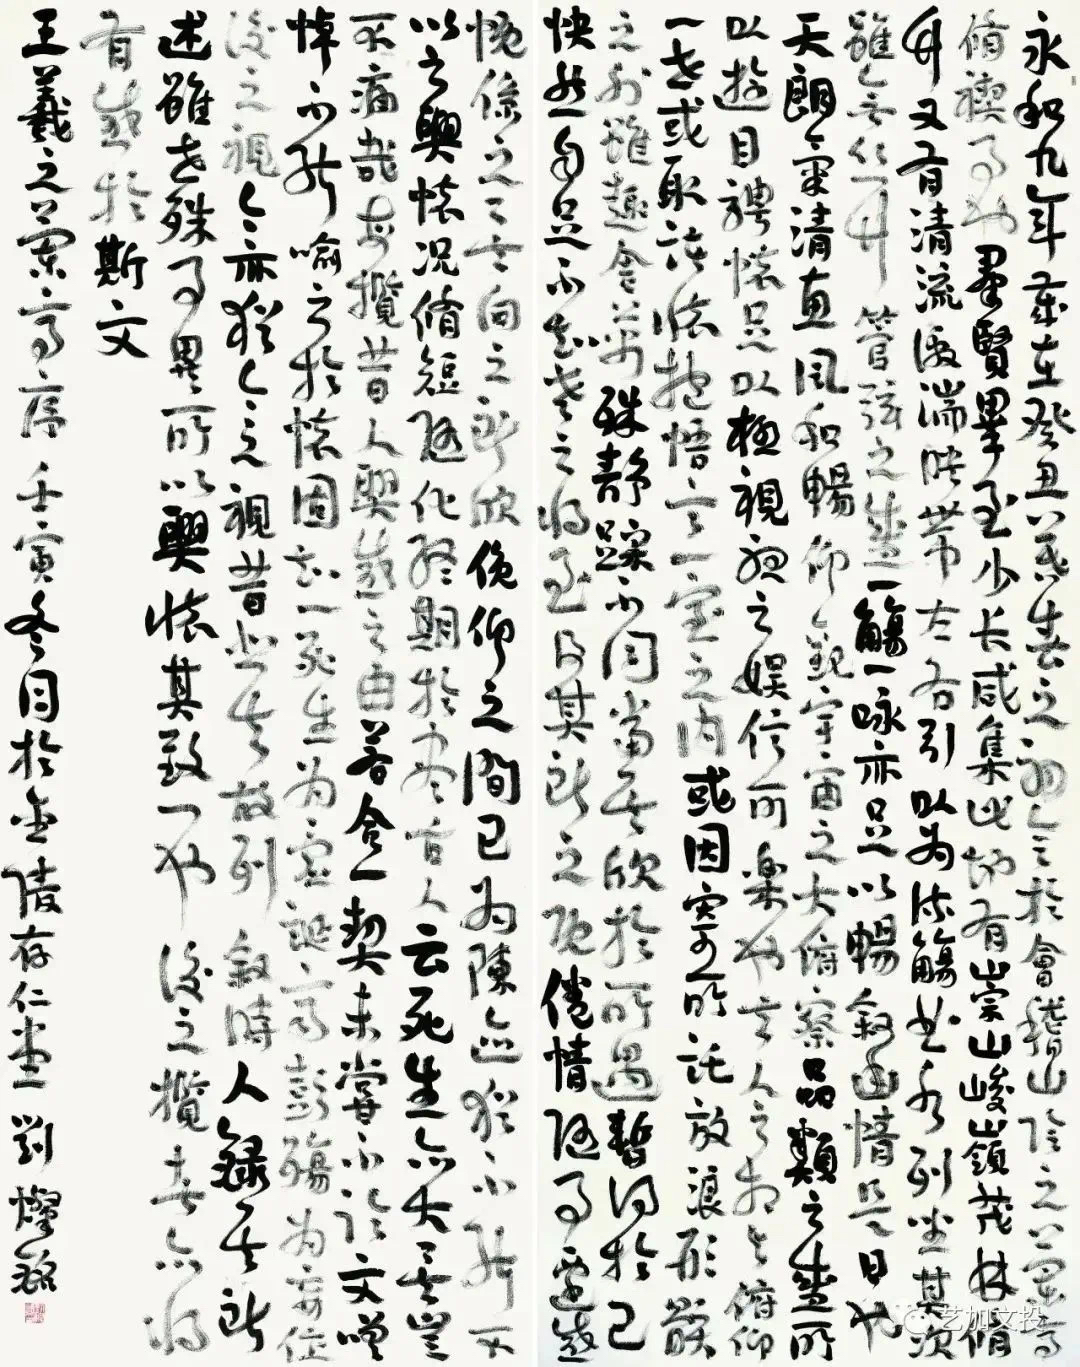 永和九年歲在癸丑暮春之初會於會稽山陰之蘭亭
脩禊事也群賢畢至少長咸集此地有崇山峻嶺茂林脩
竹又有清流激湍暎帶左右引以為流觴曲水列坐其次
雖無絲竹管弦之盛一觴一咏亦足以暢敘幽情是日也
天朗氣清惠風和暢仰觀宇宙之大俯察品類之盛所
以遊目騁懷足以極視聽之娛信可樂也夫人之相與俯仰
一世或取諸懷抱悟言一室之內或因寄所託放浪形骸
之外雖趣舍萬殊靜躁不同當其欣於所遇暫得於己
快然自足不知老之將至及其所之既倦情隨事遷感
慨係之矣向之所欣俛仰之間已為陳迹猶不能不
以之興懷況脩短隨化終期於盡古人云死生亦大矣豈
不痛哉每攬昔人興感之由若合一契未嘗不臨文嗟
悼不能喻之於懷固知一死生為虛誕齊彭殤為妄作
後之視今亦猶今之視昔悲夫故列敘時人錄其所
述雖世殊事異所以興懷其致一也後之攬者亦將
有感於斯文
王羲之蘭亭序 壬寅冬月於金陵存仁堂 劉燦銘
艺加文投